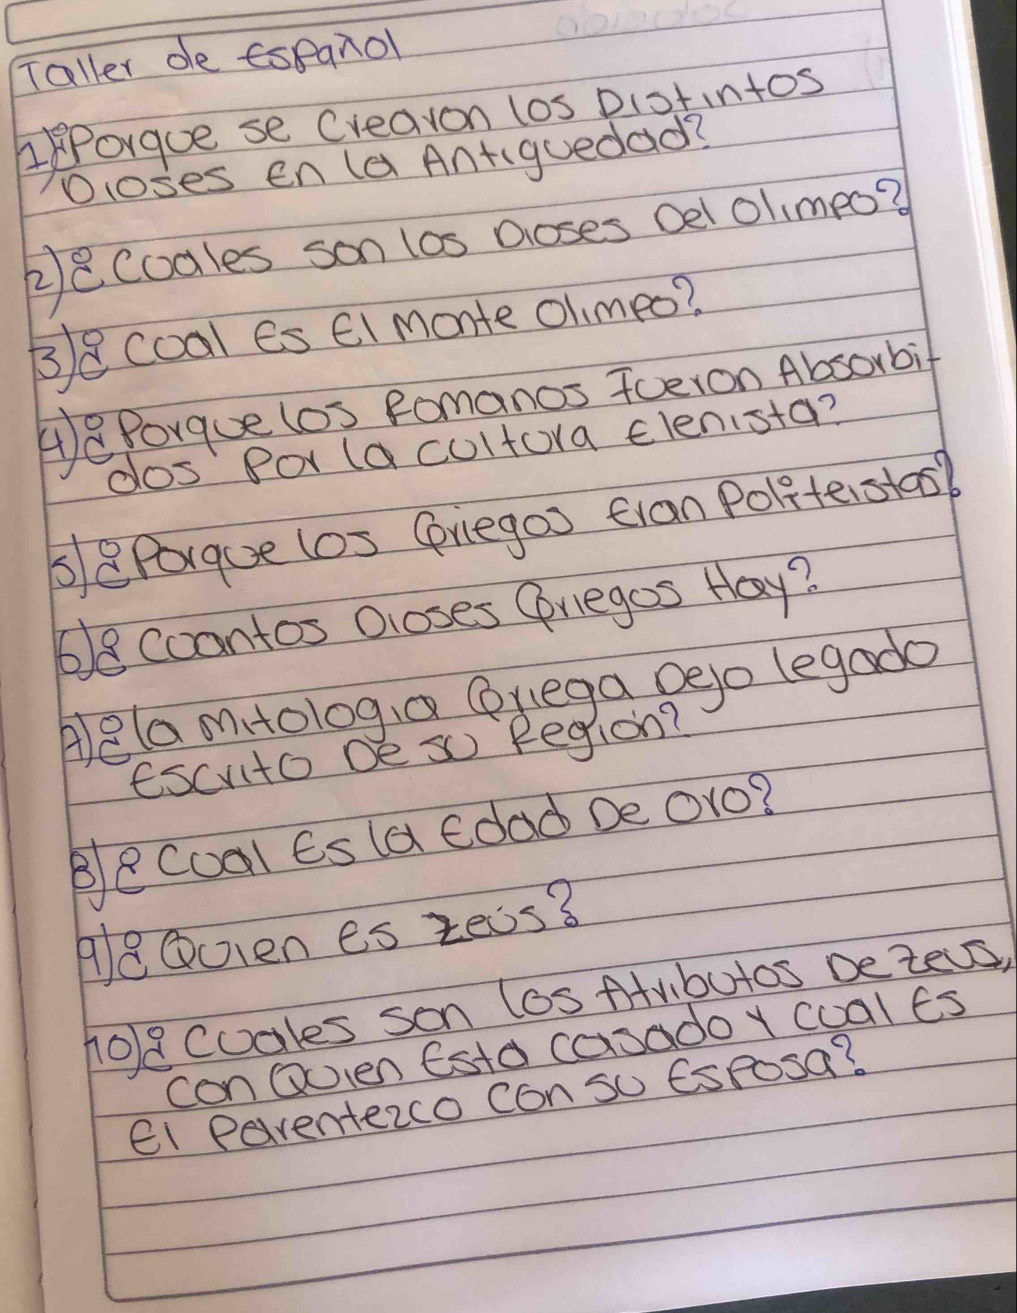 Taller de Español
1) ¿Porque se crearon los Distintos
Dioses en la Antiguedad?
2) ¿Cuales son los Dioses Del Olimpo?
3) ¿Cual Es El Monte Olimpo?
4) ¿Porque los Romanos Fueron Absorbi-
dos Por la cultura Elenista?
5) ¿Porque los Griegos Eran Politeistas?
6) ¿Cuantos Dioses Griegos Hay?
7) ¿la mitologia Griega Dejo legado
Escrito De su Región?
8) ¿Cual Es la Edad De Oro?
9) ¿Quien es Zeus?
10) ¿Cuales son los Atributos De Zeus,
con Quien Esta casado y cual Es
El Parentezco con su Esposa?